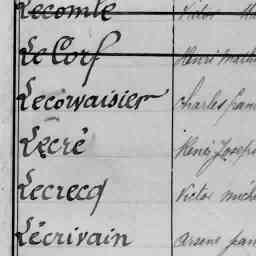 Lecomte Victor
Le Corf Henri
Lecorvaisier Charles
Lecré Henri Joseph
Lecrecq Victor
Lécrivain Arsène